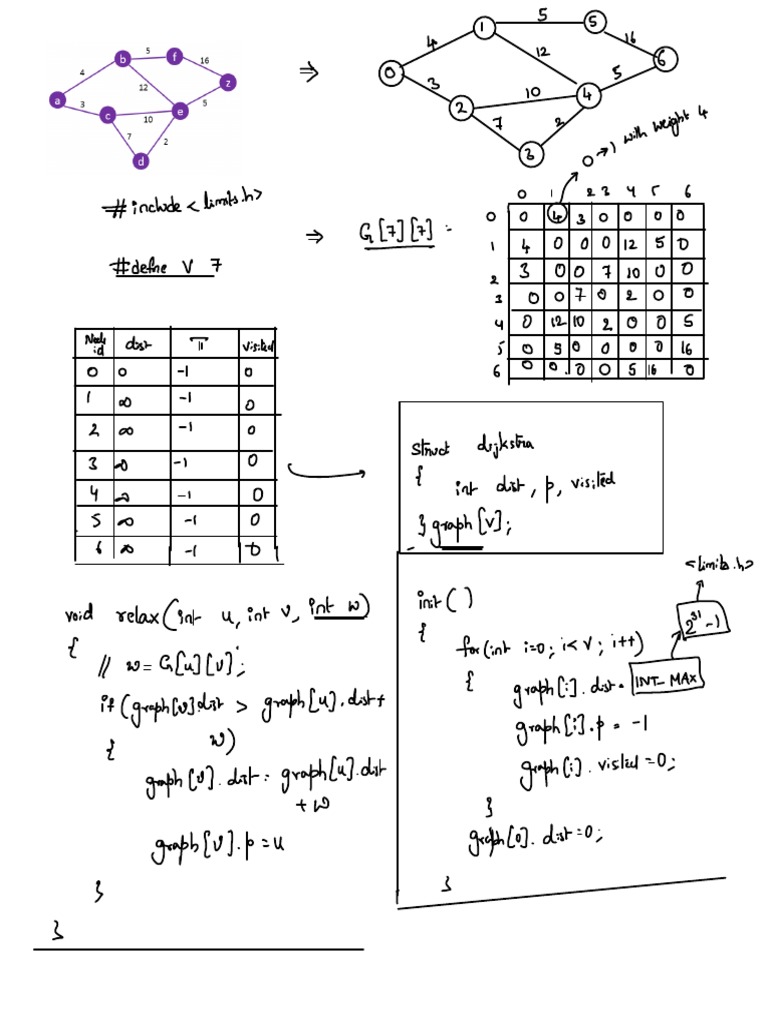 4 b 5 f 16
a 12 z
3 c 10 e 5
7 2
d
⇒
0 4 1 5 5 16 6
3 12 5
2 10 4
7 2
3
0→1 with weight 4
#include <limits.h>
#define V 7
⇒ G[7][7] =
0 1 2 3 4 5 6
0 0 4 3 0 0 0 0
1 4 0 0 0 12 5 0
2 3 0 0 7 10 0 0
3 0 0 7 0 2 0 0
4 0 12 10 2 0 0 5
5 0 5 0 0 0 0 16
6 0 0 0 0 5 16 0
Node id dist π visited
0 0 -1 0
1 ∞ -1 0
2 ∞ -1 0
3 ∞ -1 0
4 ∞ -1 0
5 ∞ -1 0
6 ∞ -1 0
struct dijkstra
{
int dist, p, visited
} graph[V];
void relax(int u, int v, int w)
{
// w = G[u][v];
if (graph[v].dist > graph[u].dist +
w)
{
graph[v].dist = graph[u].dist
+ w
graph[v].p = u
}
}
<limits.h>
2^31 -1
init()
{
for(int i=0; i<V; i++)
{
graph[i].dist = INT_MAX
graph[i].p = -1
graph[i].visited = 0;
}
graph[0].dist = 0;
}